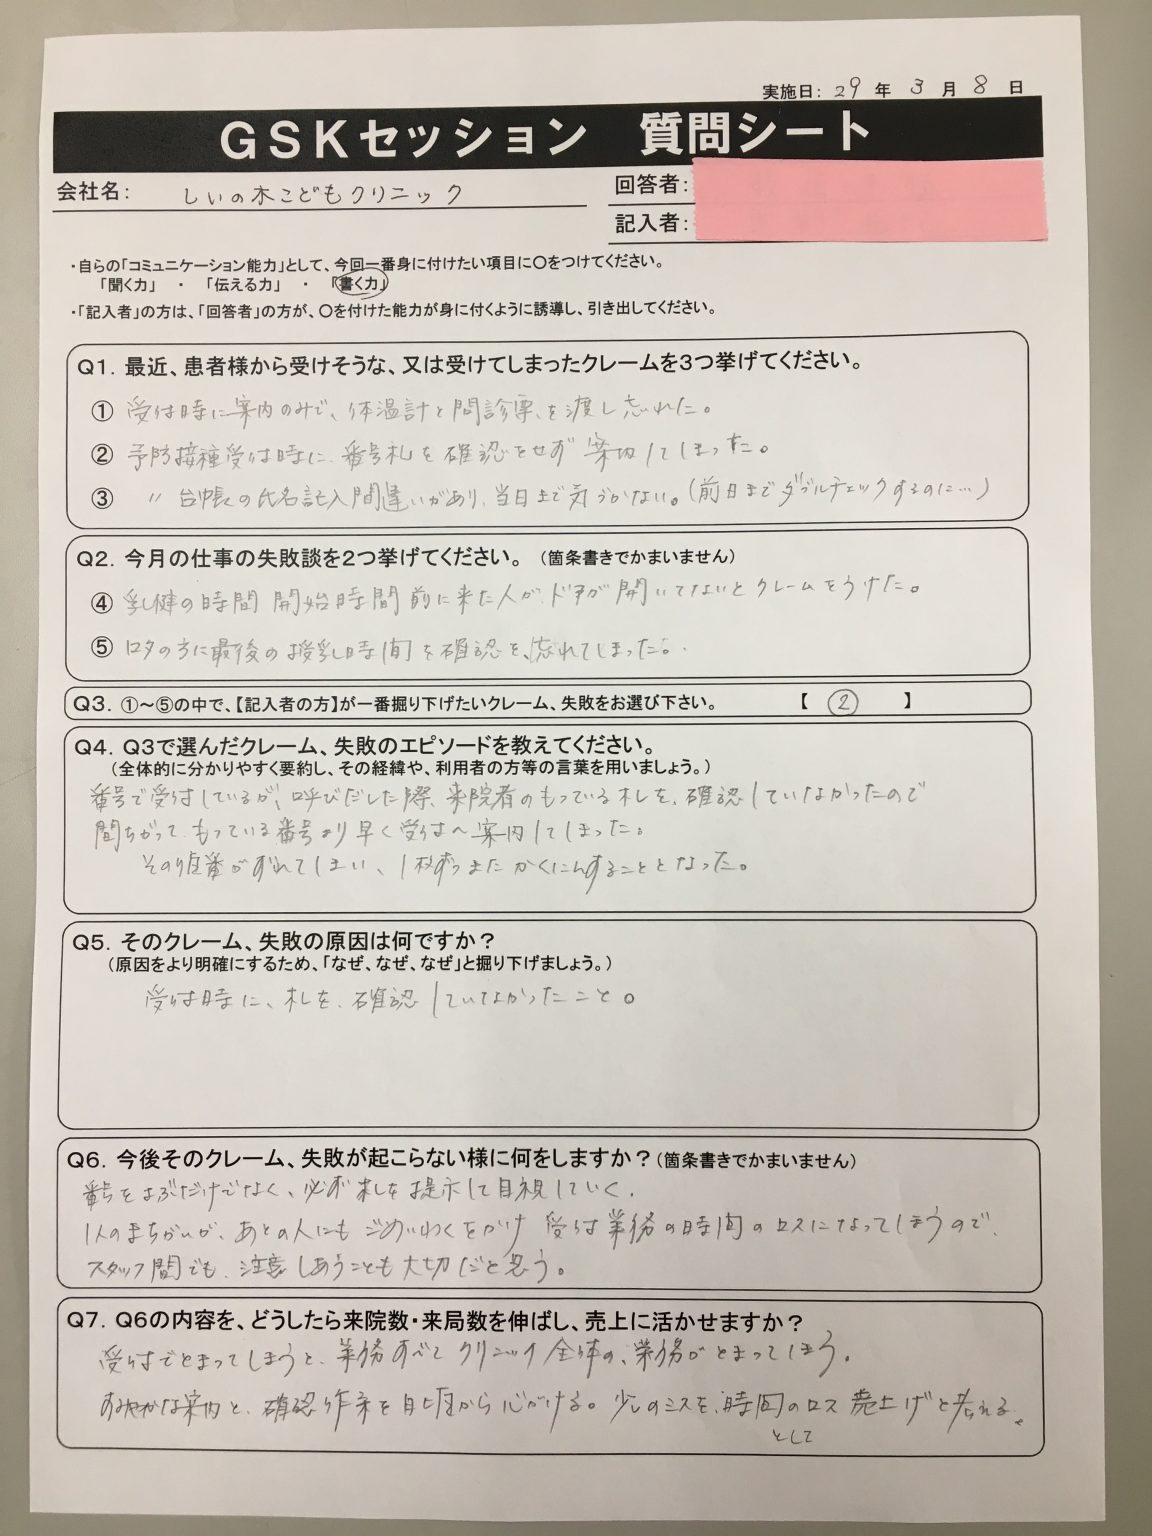 実施日: 29 年 3 月 8 日
GSKセッション 質問シート
会社名: しいの木こどもクリニック
回答者:
記入者:
・自らの「コミュニケーション能力」として、今回一番身に付けたい項目に○をつけてください。
「聞く力」 ・ 「伝える力」 ・ 「書く力」
・「記入者」の方は、「回答者」の方が、○を付けた能力が身に付くように誘導し、引き出してください。
Q1. 最近、患者様から受けそうな、又は受けてしまったクレームを3つ挙げてください。
① 受付時に案内のみで、体温計と問診票を渡し忘れた。
② 予防接種受付時に、番号札を確認をせず案内してしまった。
③ 〃 台帳の氏名記入間違いがあり、当日まで気づかない。(前日までダブルチェックするのに…)
Q2. 今月の仕事の失敗談を2つ挙げてください。 (箇条書きでかまいません)
④ 乳健の時間 開始時間前に来た人が、ドアが開いてないとクレームをうけた。
⑤ ロタの方に最後の授乳時間を確認を、忘れてしまった。
Q3. ①~⑤の中で、【記入者の方】が一番掘り下げたいクレーム、失敗をお選び下さい。 【 ② 】
Q4. Q3で選んだクレーム、失敗のエピソードを教えてください。
(全体的に分かりやすく要約し、その経緯や、利用者の方等の言葉を用いましょう。)
番号で受付しているが、呼びだした際、来院者のもっている札を、確認していなかったので
間ちがって、もっている番号より早く受付へ案内してしまった。
その順番がずれてしまい、1枚ずつまたかくにんすることとなった。
Q5. そのクレーム、失敗の原因は何ですか?
(原因をより明確にするため、「なぜ、なぜ、なぜ」と掘り下げましょう。)
受付時に、札を、確認していなかったこと。
Q6. 今後そのクレーム、失敗が起こらない様に何をしますか?(箇条書きでかまいません)
番号をよぶだけでなく、必ず札を提示して目視していく、
1人のまちがいが、あとの人にもごめいわくをかけ 受付業務の時間のロスになってしまうので、
スタッフ間でも、注意しあうことも大切だと思う。
Q7. Q6の内容を、どうしたら来院数・来局数を伸ばし、売上に活かせますか?
受付でとまってしまうと、業務すべてクリニック全体の、業務がとまってしまう。
すみやかな案内と、確認作業を日頃から心がける。少しのミスを、時間のロス 売上げと考える。
として